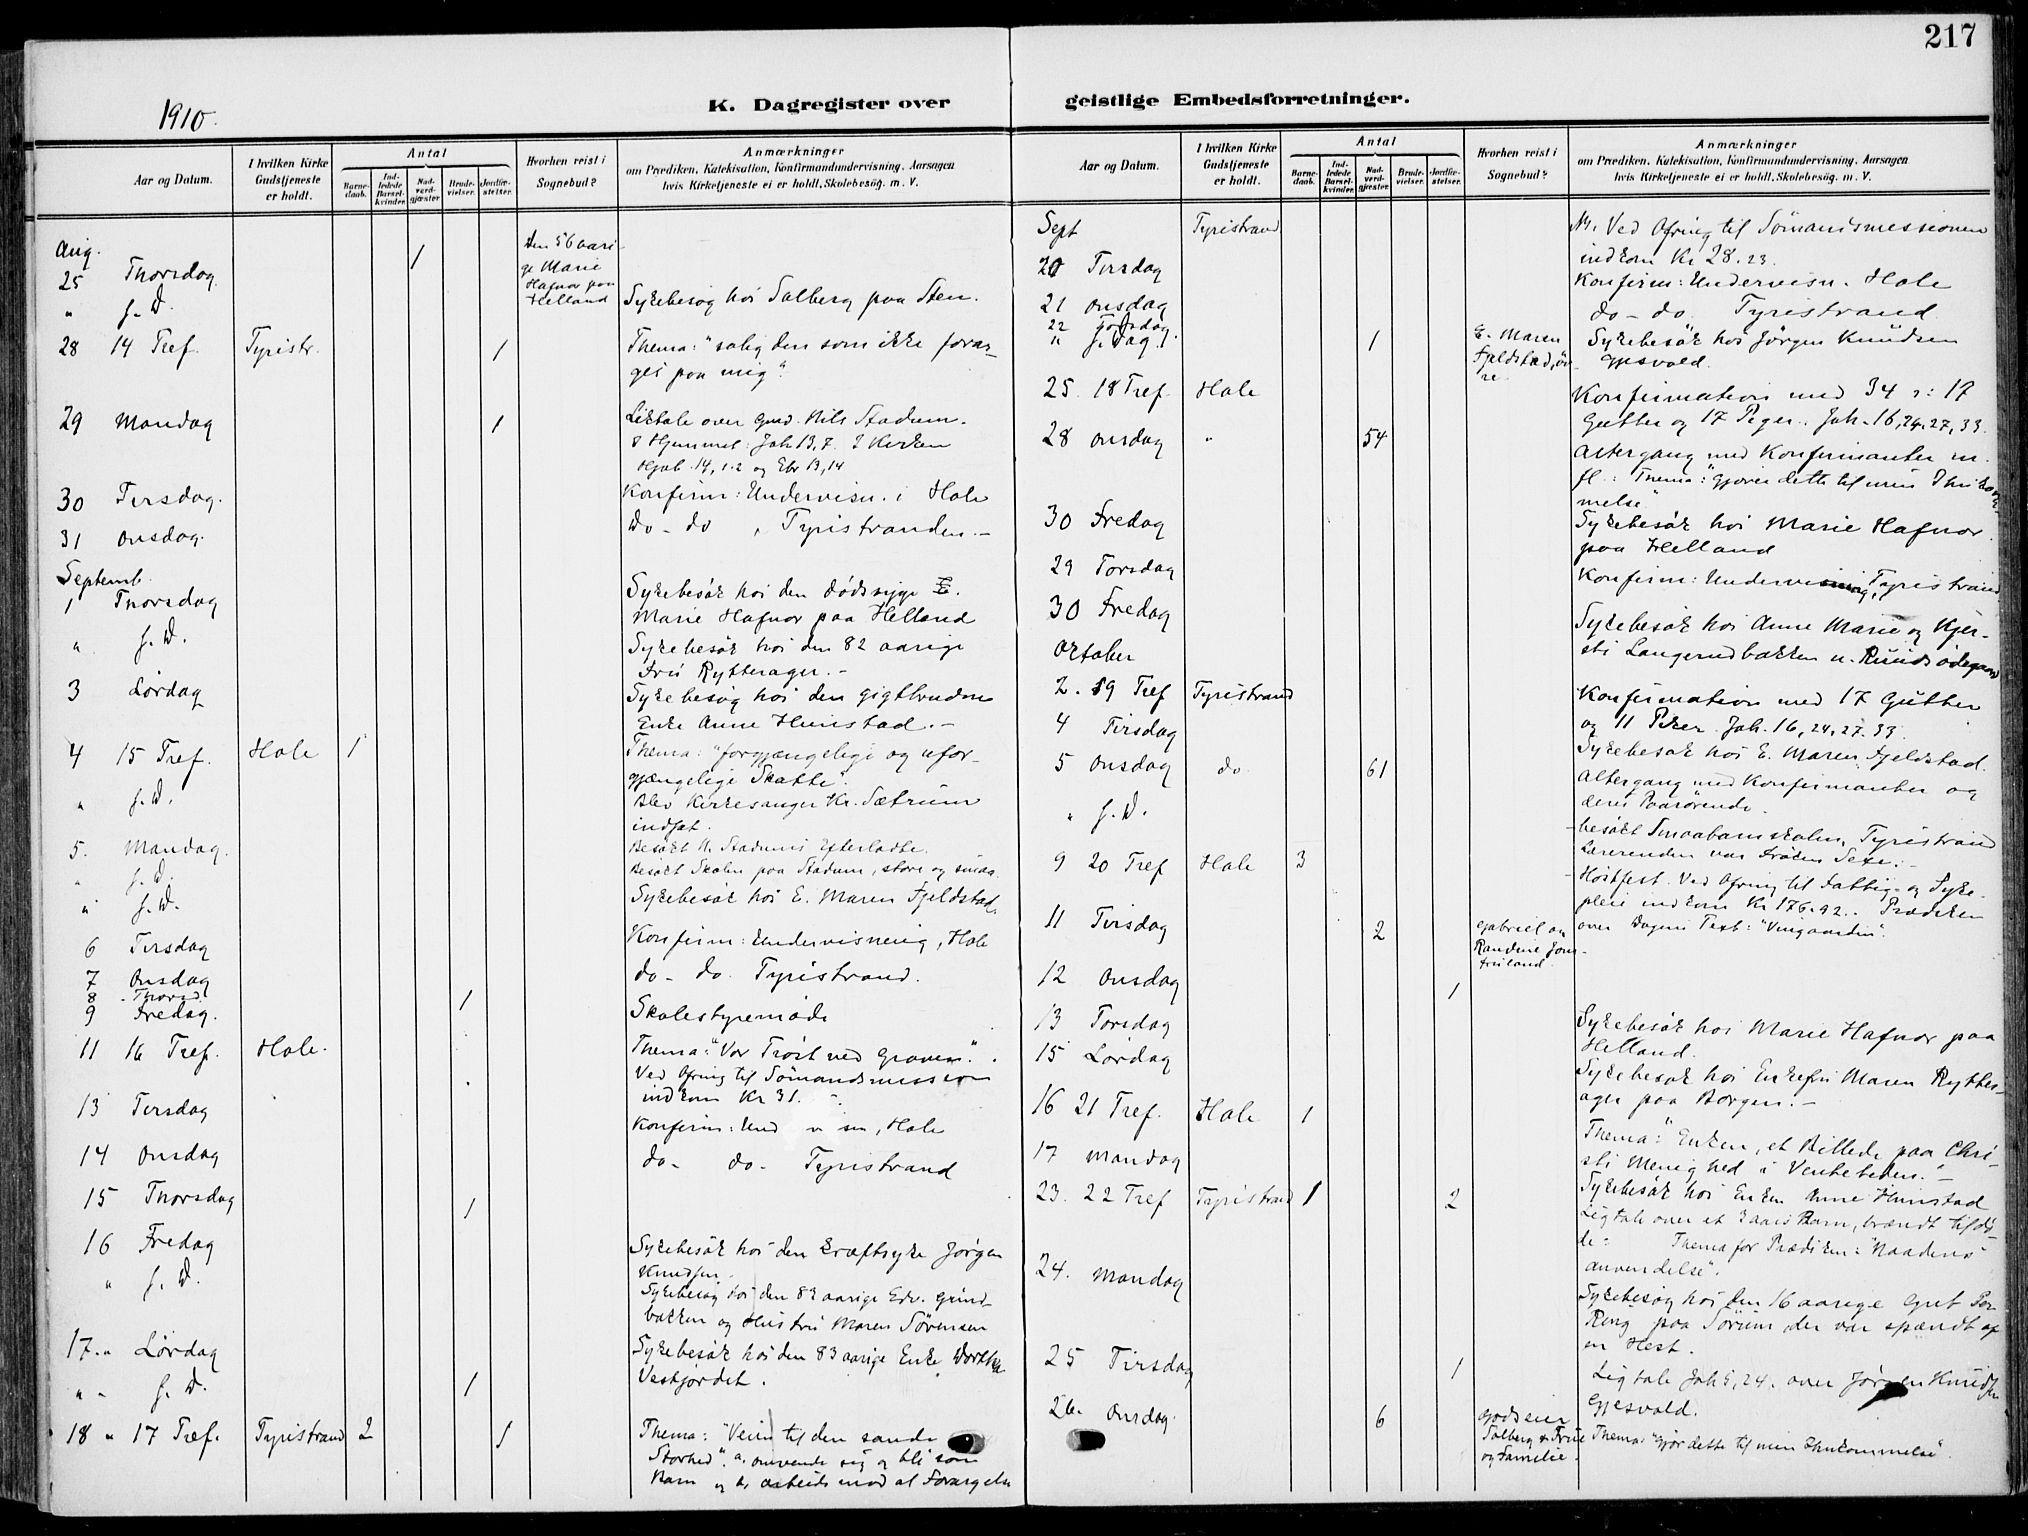 217
1910.
K. Dagregister over
geistlige Embedsforretninger.
Aar og Datum.
I hvilken Kirke
Gudstjeneste
er holdt.
Antal
Barne-
daab.
Ind-
ledede
Barsel-
kvinder.
Nad-
verd-
gjæster
Brude-
vielser.
Jordfæ-
stelser.
Hvorhen reist i
Sognebud?
Anmærkninger
om Prædiken, Katekisation, Konfirmandundervisning, Aarsagen
hvis Kirketjeneste ei er holdt, Skolebesøg. m. V.
Aug.
25 Thorsdag 1 Den 56 aari-
ge Marie
Hafnor paa
Helland
" s. D. Sygebesøg hos Solberg paa Sten.
28 14 Tref. Tyristr. 1 Thema: "salig den som ikke forar-
ges paa mig".
29 Mandag 1 Liktale over Nils Stadum.
I Hjemmet: Joh 13,7. I Kirken
14, 1-2 og Ebr 13,14
30 Tirsdag. Konfirm: Undervisn. i Hole
31 Onsdag. Do - do , Tyristranden. -
Septemb.
1 Thorsdag Sykebesøk hos den dødssyge E.
Marie Hafnor paa Helland
" s. D. Sykebesøk hos den 82 aarige
Fru Rytterager. -
3 Lørdag Sykebesøg hos den gigtbrudne
Enke Anne Hunstad. -
4 15 Tref. Hole 1 Thema: "forgjængelige og ufor-
gjængelige Skatte".
" s. D. Blev Kirkesanger Kr. Sætrum
indsat.
5. Mandag. Besøkt N. Stadums Efterladte.
" s. D. Besøkt Skolen paa Stadum, store og smaa.
" s. D. Sykebesøk hos E. Maren Fjeldstad.
6 Tirsdag Konfirm: Undervisning, Hole
7 Onsdag do - do. Tyristrand.
8 - Thorsd. 1
9 Fredag. Skolestyremøde
11 16 Tref. Hole. Thema: "Vor Trøst ved Graven".
Ved Ofring til Sømandsmission
indkom Kr 31.
13 Tirsdag Konfirm: Und v sn, Hole
14 Onsdag do - do - Tyristrand
15 Thorsdag 1
16 Fredag Sykebesøk hos den kræftsyke Jørgen
Knudsen.
" s. D. Sykebesøg hos den 83 aarige Edv. Grund-
bakken og Hustru Maren Sørensen
17. " Lørdag Sykebesøk hos den 83 aarige Enke Dorthea
Vestjordet.
" - s. D. 1
18 " 17 Tref. Tyristrand 2 1 Thema: "Veien til den sande
Storhed". a. omvende sig og bli som
Barn og b, arbeide mod al Forargelse
Aar og Datum.
I hvilken Kirke
Gudstjeneste
er holdt.
Antal
Barne-
daab.
Ind-
ledede
Barsel-
kvinder.
Nad-
verd-
gjæster
Brude-
vielser.
Jordfæ-
stelser.
Hvorhen reist i
Sognebud?
Anmærkninger
om Prædiken, Katekisation, Konfirmandundervisning, Aarsagen
hvis Kirketjeneste ei er holdt, Skolebesøg. m. V.
Sept Tyristrand Ved Ofring til Sømandsmissionen
indkom Kr 28.23.
20 Tirsdag Konfirm: Undervisn. Hole
21 Onsdag do - do. Tyristrand
22 Torsdag 1 E. Maren
Fjeldstad, øv-
re.
" s. Dag. Sykebesøk hos Jørgen Knudsen
Gjesvold.
25. 18 Tref. Hole Konfirmation med 34 : 17
Gutter og 17 Piger. Joh. 16, 24, 27, 33.
28 Onsdag " 54 Altergang med Konfirmanter m.
fl.: Thema: "Gjører dette til min Ihukom-
melse"
30 Fredag Sykebesøk hos Marie Hafnor
paa Helland
29 Torsdag Konfirm: Undervisning, Tyristrand
30 Fredag Sykebesøk hos Anne Marie og Kjer-
sti Langerudbakken u. Ruudsødegaard
Oktober
2. 19 Tref Tyristrand Konfirmation med 17 Gutter
og 11 Piker. Joh. 16, 24, 27, 33.
4 Tirsdag Sykebesøk hos E. Maren Fjeldstad.
5 Onsdag do. 61 Altergang med Konfirmanter og
deres Paarørende.
" s. D. besøkt Smaabarnskolen, Tyristrand
Lærerinden var Frøken Sexe. -
9 20 Tref Hole 3 Høstfest. Ved Ofring til Fattig- og Syke-
pleie indkom Kr 176.92.. Prædiken
over Dagens Text: "Vingaarden".
11 Tirsdag 2 Gabriel og
Randine Jons-
rudland.
12 Onsdag 1
13 Torsdag Sykebesøk hos Marie Hafnor paa
Helland.
15 Lørdag Sykebesøk hos Enkefru Maren Rytter-
ager paa Borgen. -
16 21 Tref. Hole 1 Thema: "Enken, et Billede paa Chri-
sti Menighed i Ventetiden". -
17 Mandag Sykebesøk hos Enken Anne Hunstad
23. 22 Tref Tyristrand 1 2 Ligtale over et 3 aars Barn, brændt tildø-
de. Thema for Prædiken: "Naadens
anvendelse".
24. Mandag Sykebesøg hos den 16 aarige Gut Per
Ring paa Sørum, der var spændt af
en Hest.
25 Tirsdag 1 Ligtale Joh 5, 24. over Jørgen Knudsen
Gjesvold.
26. Onsdag. 6 Godseier
Solberg & Frue
og Familie. Thema: "Gjør dette til min Ihukommelse".